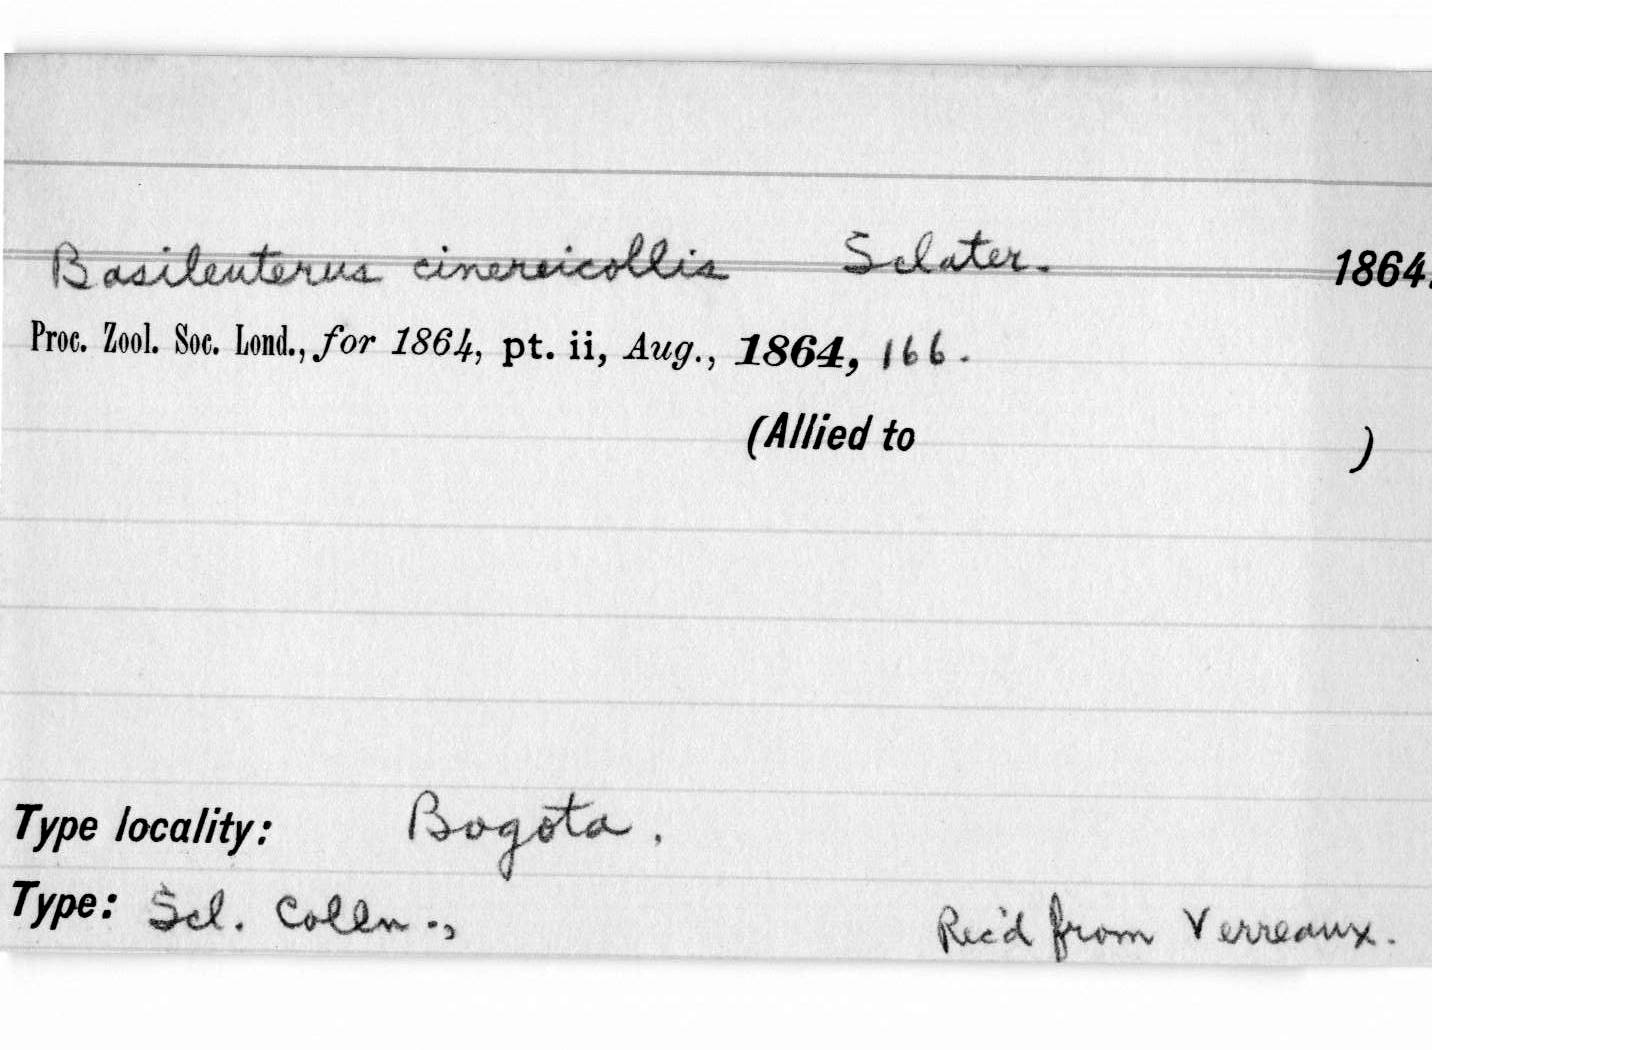 Basileuterus cinereicollis Sclater. 1864.
Proc. Zool. Soc. Lond., for 1864, pt. ii, Aug., 1864, 166.
(Allied to )
Type locality: Bogota.
Type: Scl. Colln., Rec'd from Verreaux.